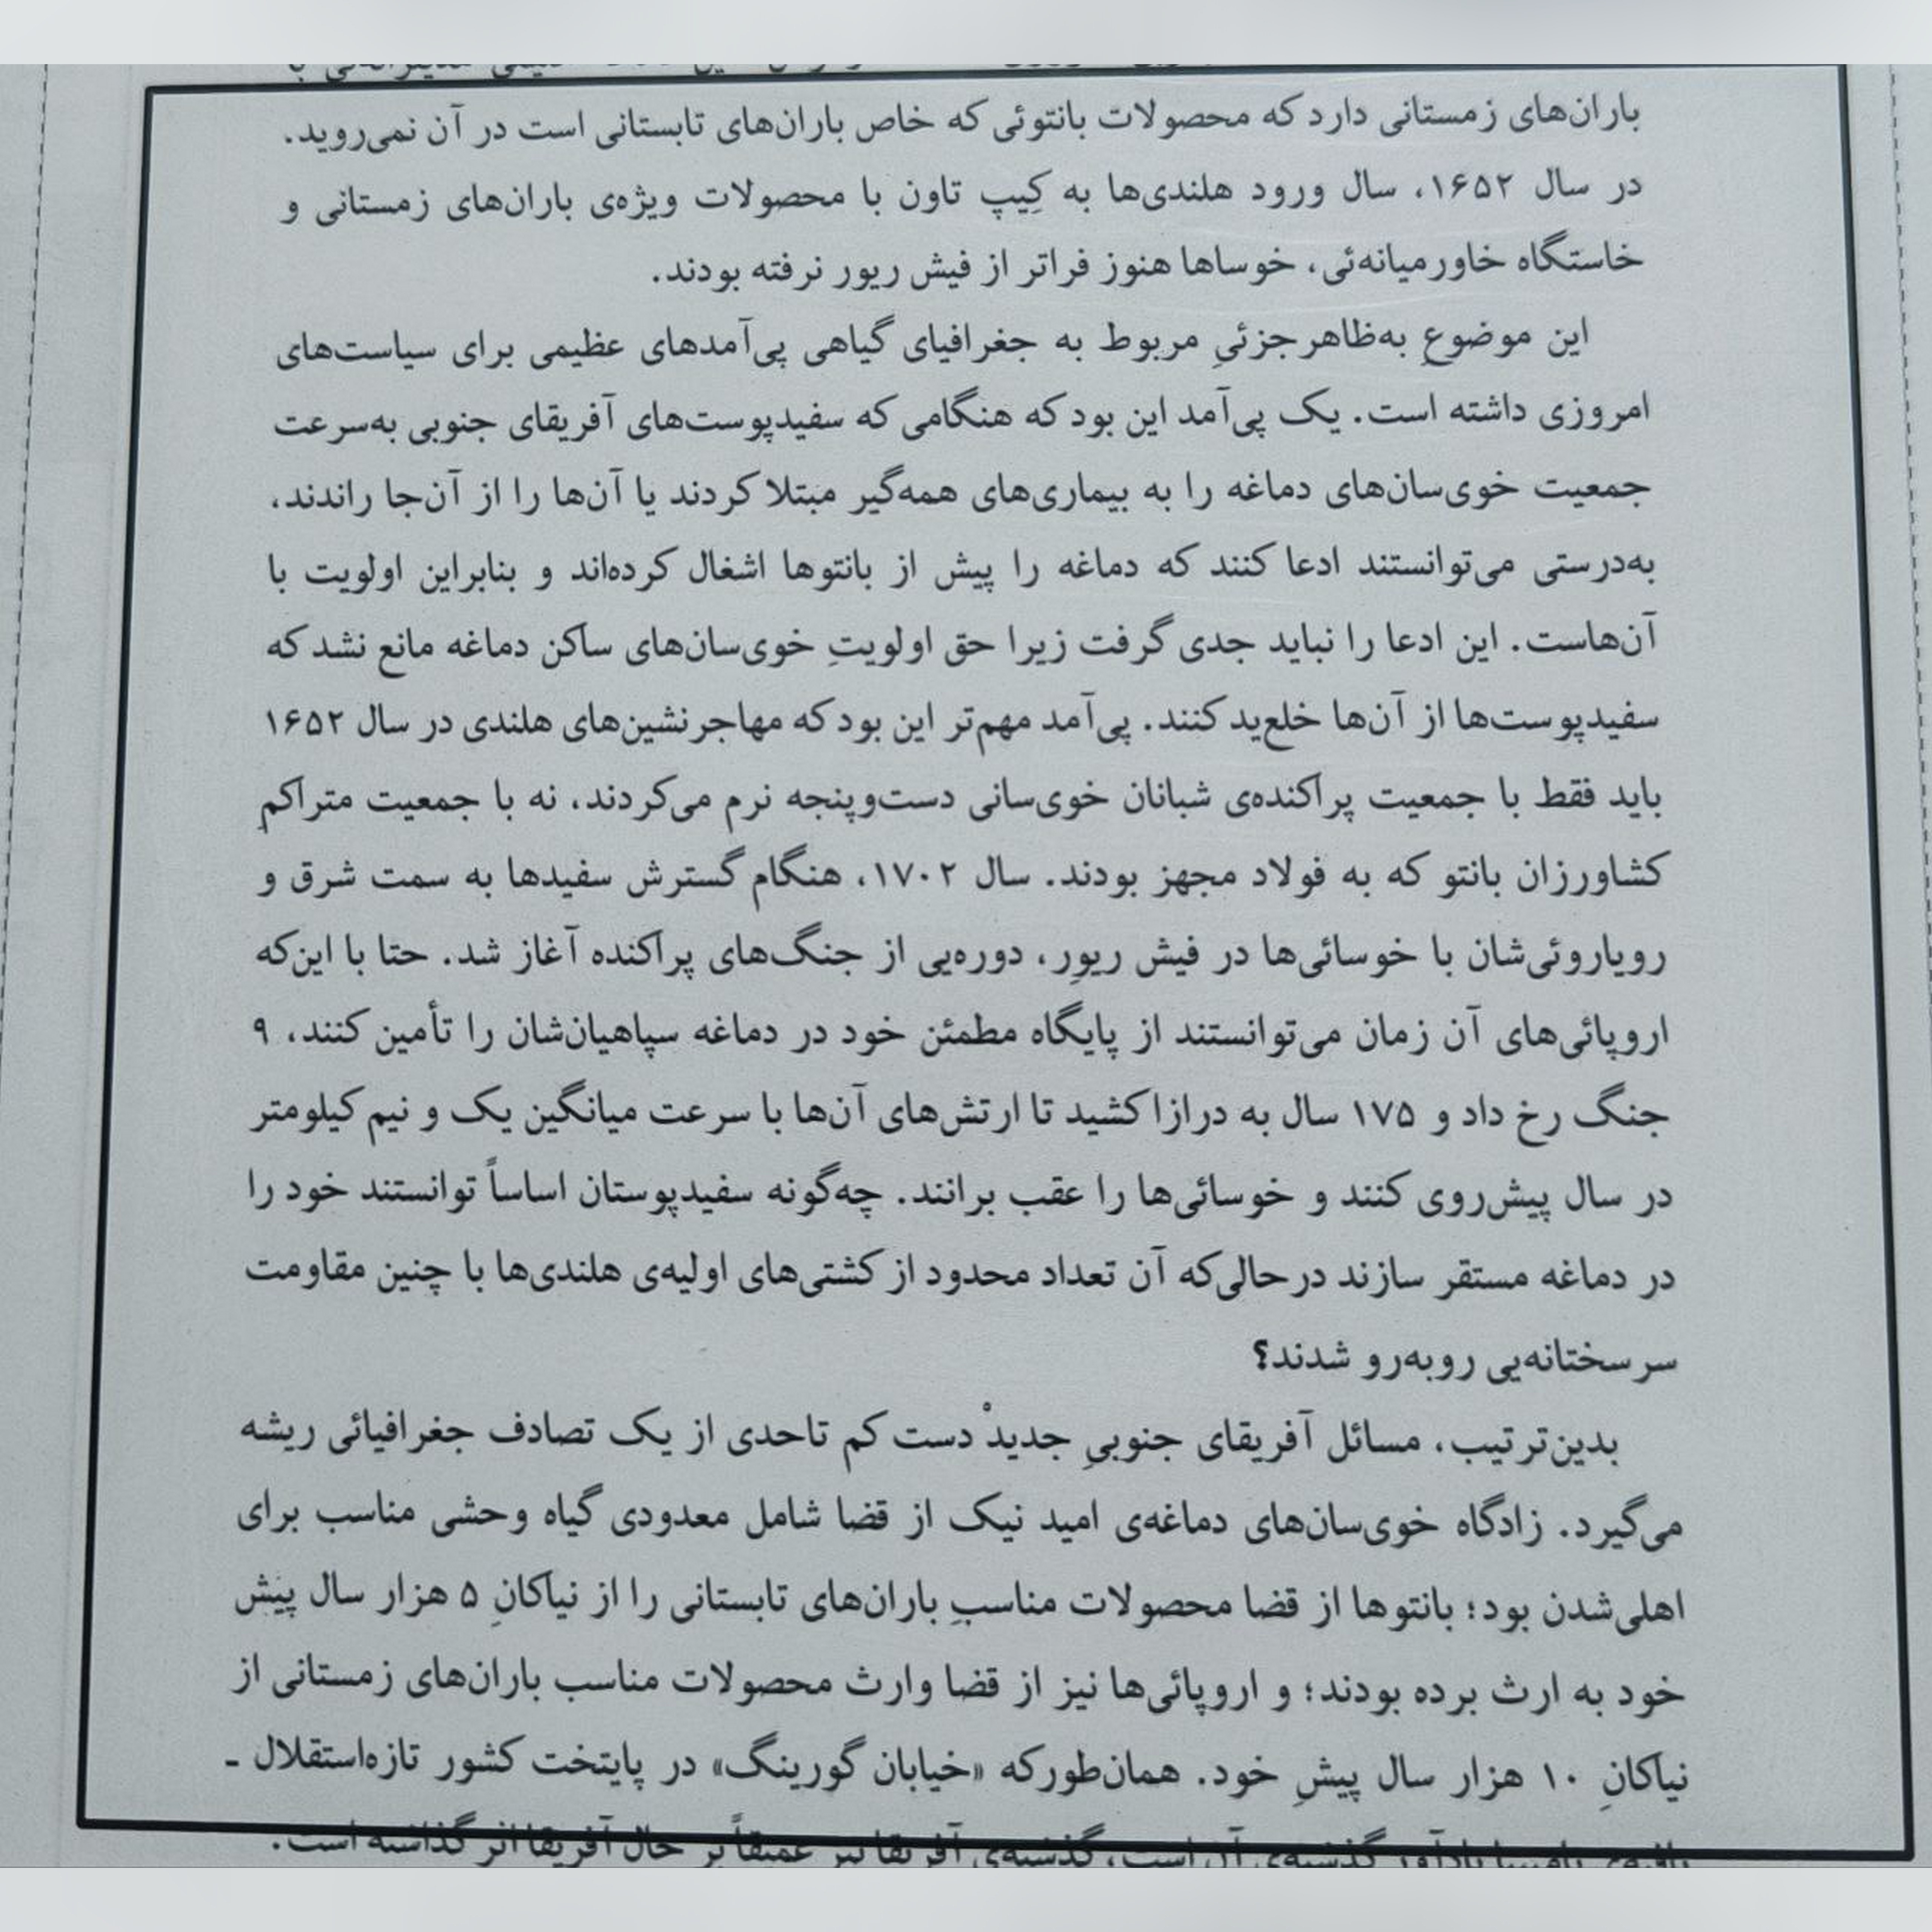 باران‌های زمستانی دارد که محصولات بانتوئی که خاص باران‌های تابستانی است در آن نمی‌روید.
در سال ۱۶۵۲، سال ورود هلندی‌ها به کِیپ تاون با محصولات ویژه‌ی باران‌های زمستانی و
خاستگاه خاورمیانه‌ئی، خوساها هنوز فراتر از فیش ریور نرفته بودند.
این موضوعِ به‌ظاهر جزئیِ مربوط به جغرافیای گیاهی پی‌آمدهای عظیمی برای سیاست‌های
امروزی داشته است. یک پی‌آمد این بود که هنگامی که سفیدپوست‌های آفریقای جنوبی به‌سرعت
جمعیت خوی‌سان‌های دماغه را به بیماری‌های همه‌گیر مبتلا کردند یا آن‌ها را از آن‌جا راندند،
به‌درستی می‌توانستند ادعا کنند که دماغه را پیش از بانتوها اشغال کرده‌اند و بنابراین اولویت با
آن‌هاست. این ادعا را نباید جدی گرفت زیرا حق اولویتِ خوی‌سان‌های ساکن دماغه مانع نشد که
سفیدپوست‌ها از آن‌ها خلع‌ید کنند. پی‌آمد مهم‌تر این بود که مهاجرنشین‌های هلندی در سال ۱۶۵۲
باید فقط با جمعیت پراکنده‌ی شبانان خوی‌سانی دست‌وپنجه نرم می‌کردند، نه با جمعیت متراکمِ
کشاورزان بانتو که به فولاد مجهز بودند. سال ۱۷۰۲، هنگام گسترش سفیدها به سمت شرق و
رویاروئی‌شان با خوسائی‌ها در فیش ریورِ، دوره‌یی از جنگ‌های پراکنده آغاز شد. حتا با این‌که
اروپائی‌های آن زمان می‌توانستند از پایگاه مطمئن خود در دماغه سپاهیان‌شان را تأمین کنند، ۹
جنگ رخ داد و ۱۷۵ سال به درازا کشید تا ارتش‌های آن‌ها با سرعت میانگین یک و نیم کیلومتر
در سال پیش‌روی کنند و خوسائی‌ها را عقب برانند. چه‌گونه سفیدپوستان اساساً توانستند خود را
در دماغه مستقر سازند درحالی‌که آن تعداد محدود از کشتی‌های اولیه‌ی هلندی‌ها با چنین مقاومت
سرسختانه‌یی روبه‌رو شدند؟
بدین‌ترتیب، مسائل آفریقای جنوبیِ جدیدْ دست کم تاحدی از یک تصادف جغرافیائی ریشه
می‌گیرد. زادگاه خوی‌سان‌های دماغه‌ی امید نیک از قضا شامل معدودی گیاه وحشی مناسب برای
اهلی‌شدن بود؛ بانتوها از قضا محصولات مناسبِ باران‌های تابستانی را از نیاکانِ ۵ هزار سال پیش
خود به ارث برده بودند؛ و اروپائی‌ها نیز از قضا وارث محصولات مناسب باران‌های زمستانی از
نیاکانِ ۱۰ هزار سال پیشِ خود. همان‌طورکه «خیابان گورینگ» در پایتخت کشور تازه‌استقلال -
یافته‌ی نامیبیا یادآور گذشته‌ی آن است، گذشته‌ی آفریقا نیز عمیقاً بر حال آفریقا اثر گذاشته است.